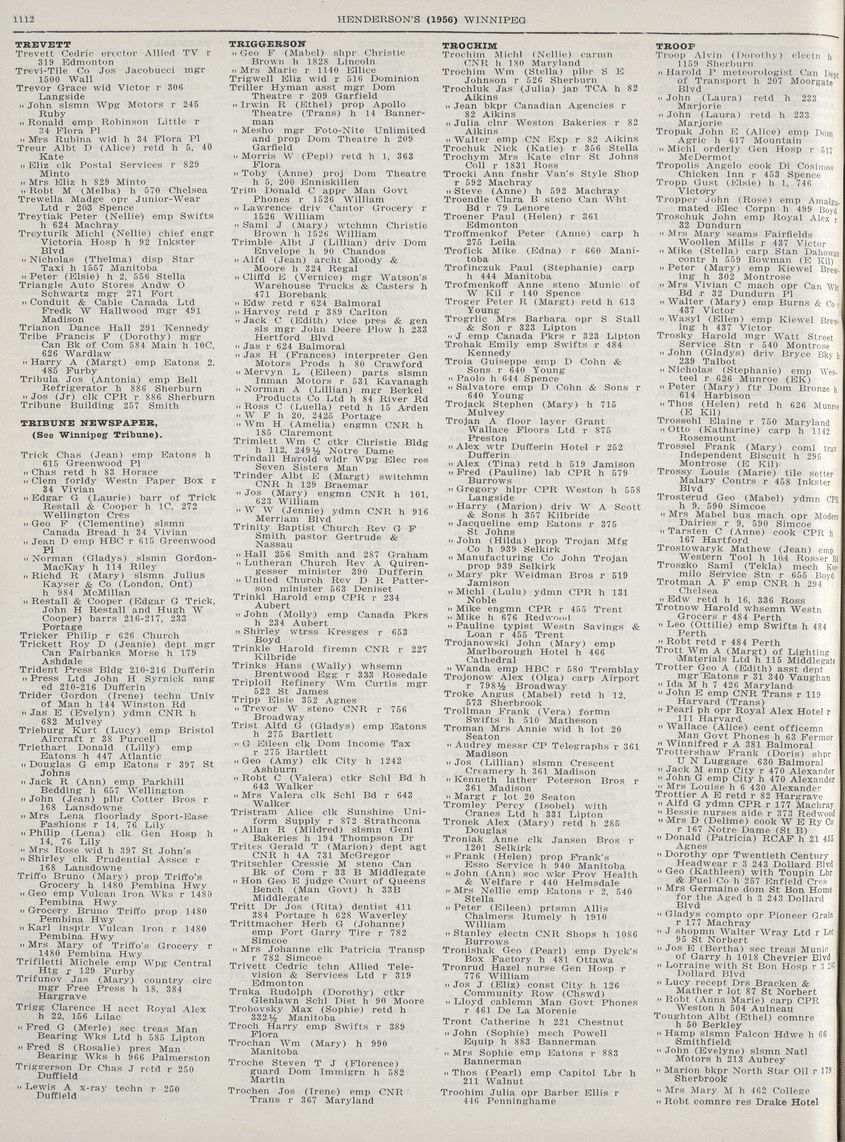 1112
HENDERSON'S (1956) WINNIPEG
TREVETT
Trevett Cedric erector Allied TV r
319 Edmonton
Trevi-Tile Co Jos Jacobucci mgr
1500 Wall
Trevor Grace wid Victor r 306
Langside
" John slsmn Wpg Motors r 245
Ruby
" Ronald emp Robinson Little r
34 Flora Pl
" Mrs Rubina wid h 34 Flora Pl
Treur Albt D (Alice) retd h 5, 40
Kate
" Eliz clk Postal Services r 829
Minto
" Mrs Eliz h 829 Minto
" Robt M (Melba) h 570 Chelsea
Trewella Madge opr Junior-Wear
Ltd r 203 Spence
Treytiak Peter (Nellie) emp Swifts
h 624 Machray
Treyturik Michl (Nellie) chief engr
Victoria Hosp h 92 Inkster
Blvd
" Nicholas (Thelma) disp Star
Taxi h 1557 Manitoba
" Peter (Elsie) h 2, 556 Stella
Triangle Auto Stores Andw O
Schwartz mgr 271 Fort
" Conduit & Cable Canada Ltd
Fredk W Hallwood mgr 491
Madison
Trianon Dance Hall 291 Kennedy
Tribe Francis F (Dorothy) mgr
Can Bk of Com 584 Main h 10C,
626 Wardlaw
" Harry A (Margt) emp Eatons 2,
485 Furby
Tribula Jos (Antonia) emp Bell
Refrigerator h 886 Sherburn
" Jos (Jr) clk CPR r 886 Sherburn
Tribune Building 257 Smith
TRIBUNE NEWSPAPER,
(See Winnipeg Tribune).
Trick Chas (Jean) emp Eatons h
615 Greenwood Pl
" Chas retd h 83 Horace
" Clem forldy Westn Paper Box r
34 Vivian
" Edgar G (Laurie) barr of Trick
Restall & Cooper h 1C, 272
Wellington Cres
" Geo F (Clementine) slsmn
Canada Bread h 34 Vivian
" Jean D emp HBC r 615 Greenwood
Pl
" Norman (Gladys) slsmn Gordon-
MacKay h 114 Riley
" Richd R (Mary) slsmn Julius
Kayser & Co (London, Ont)
h 984 McMillan
" Restall & Cooper (Edgar G Trick,
John H Restall and Hugh W
Cooper) barrs 216-217, 233
Portage
Tricker Philip r 626 Church
Trickett Roy D (Jeanie) dept mgr
Can Fairbanks Morse h 179
Ashdale
Trident Press Bldg 210-216 Dufferin
" Press Ltd John H Syrnick mng
ed 210-216 Dufferin
Trider Gordon (Irene) techn Univ
of Man h 144 Winston Rd
" Jas E (Evelyn) ydmn CNR h
682 Mulvey
Trieburg Kurt (Lucy) emp Bristol
Aircraft r 38 Purcell
Triethart Donald (Lilly) emp
Eatons h 447 Atlantic
" Douglas G emp Eatons r 397 St
Johns
" Jack R (Ann) emp Parkhill
Bedding h 657 Wellington
" John (Jean) plbr Cotter Bros r
168 Lansdowne
" Mrs Lena floorlady Sport-Ease
Fashions r 14, 76 Lily
" Philip (Lena) clk Gen Hosp h
14, 76 Lily
" Mrs Rose wid h 397 St John's
" Shirley clk Prudential Assce r
168 Lansdowne
Triffo Bruno (Mary) prop Triffo's
Grocery h 1480 Pembina Hwy
" Geo emp Vulcan Iron Wks r 1480
Pembina Hwy
" Grocery Bruno Triffo prop 1480
Pembina Hwy
" Karl insptr Vulcan Iron r 1480
Pembina Hwy
" Mrs Mary of Triffo's Grocery r
1480 Pembina Hwy
Trifiletti Michele emp Wpg Central
Htg r 129 Furby
Trifunov Jas (Mary) country circ
mgr Free Press h 18, 384
Hargrave
Trigg Clarence H acct Royal Alex
h 22, 156 Lilac
" Fred G (Merle) sec treas Man
Bearing Wks Ltd h 585 Lipton
" Fred S (Rosalie) pres Man
Bearing Wks h 966 Palmerston
Triggerson Dr Chas J retd r 250
Duffield
" Lewis A x-ray techn r 250
Duffield
TRIGGERSON
" Geo F (Mabel) shpr Christie
Brown h 1828 Lincoln
" Mrs Marie r 1140 Ellice
Trigwell Eliz wid r 516 Dominion
Triller Hyman asst mgr Dom
Theatre r 209 Garfield
" Irwin R (Ethel) prop Apollo
Theatre (Trans) h 14 Banner-
man
" Mesho mgr Foto-Nite Unlimited
and prop Dom Theatre h 209
Garfield
" Morris W (Pepi) retd h 1, 363
Flora
" Toby (Anne) proj Dom Theatre
h 5, 200 Enniskillen
Trim Donald C appr Man Govt
Phones r 1526 William
" Lawrence driv Cantor Grocery r
1526 William
" Saml J (Mary) wtchmn Christie
Brown h 1526 William
Trimble Albt J (Lillian) driv Dom
Envelope h 90 Chandos
" Alfd (Jean) archt Moody &
Moore h 324 Regal
" Cliffd E (Vernice) mgr Watson's
Warehouse Trucks & Casters h
471 Borebank
" Edw retd r 624 Balmoral
" Harvey retd r 389 Carlton
" Jack C (Edith) vice pres & gen
sls mgr John Deere Plow h 233
Hertford Blvd
" Jas r 624 Balmoral
" Jas H (Frances) interpreter Gen
Motors Prods h 80 Crawford
" Mervyn L (Eileen) parts slsmn
Inman Motors r 531 Kavanagh
" Norman A (Lillian) mgr Berkel
Products Co Ltd h 84 River Rd
" Ross C (Luella) retd h 15 Arden
" W F h 20, 2425 Portage
" Wm H (Amelia) engmn CNR h
185 Claremont
Trimlett Wm C ctkr Christie Bldg
h 112, 249½ Notre Dame
Trindall Harold wldr Wpg Elec res
Seven Sisters Man
Trinder Albt E (Margt) switchmn
CNR h 129 Braemar
" Jos (Mary) engmn CNR h 101,
623 William
" W W (Jennie) ydmn CNR h 916
Merriam Blvd
Trinity Baptist Church Rev G F
Smith pastor Gertrude &
Nassau
" Hall 256 Smith and 287 Graham
" Lutheran Church Rev A Quiren-
gesser minister 390 Dufferin
" United Church Rev D R Patter-
son minister 563 Deniset
Trinkl Harold emp CPR r 234
Aubert
" John (Molly) emp Canada Pkrs
h 234 Aubert
" Shirley wtrss Kresges r 653
Boyd
Trinkle Harold firemn CNR r 227
Kilbride
Trinks Hans (Wally) whsemn
Brentwood Egg r 333 Rosedale
Triploil Refinery Wm Curtis mgr
522 St James
Tripp Elsie 352 Agnes
" Trevor W steno CNR r 756
Broadway
Trist Alfd G (Gladys) emp Eatons
h 275 Bartlett
" G Eileen clk Dom Income Tax
r 275 Bartlett
" Geo (Amy) clk City h 1242
Ashburn
" Robt C (Valera) ctkr Schl Bd h
643 Walker
" Mrs Valera clk Schl Bd r 643
Walker
Tristram Alice clk Sunshine Uni-
form Supply r 872 Strathcona
" Allan R (Mildred) slsmn Genl
Bakeries h 194 Thompson Dr
Trites Gerald T (Marion) dept agt
CNR h 4A 731 McGregor
Tritschler Cressie M steno Can
Bk of Com r 33 B Middlegate
" Hon Geo E judge Court of Queens
Bench (Man Govt) h 33B
Middlegate
Tritt Dr Jos (Rita) dentist 411
384 Portage h 628 Waverley
Trittmacher Herb G (Johanne)
emp Fort Garry Tire r 782
Simcoe
" Mrs Johanne clk Patricia Transp
r 782 Simcoe
Trivett Cedric techn Allied Tele-
vision & Services Ltd r 319
Edmonton
Trnka Rudolph (Dorothy) ctkr
Glenlawn Schl Dist h 90 Moore
Trobovsky Max (Sophie) retd h
332½ Manitoba
Troch Harry emp Swifts r 389
Flora
Trochan Wm (Mary) h 990
Manitoba
Troche Steven T J (Florence)
guard Dom Immigrn h 582
Martin
Trochen Jos (Irene) emp CNR
Trans r 367 Maryland
TROCHIM
Trochim Michl (Nellie) carmn
CNR h 180 Maryland
Trochim Wm (Stella) plbr S E
Johnson r 526 Sherburn
Trochluk Jas (Julia) jan TCA h 82
Aikins
" Jean bkpr Canadian Agencies r
82 Aikins
" Julia clnr Weston Bakeries r 82
Aikins
" Walter emp CN Exp r 82 Aikins
Trochuk Nick (Katie) r 356 Stella
Trochym Mrs Kate clnr St Johns
Coll r 183 Ross
Trocki Ann fnshr Van's Style Shop
r 592 Machray
" Steve (Anne) h 592 Machray
Troendle Clara B steno Can Wht
Bd r 79 Lenore
Troener Paul (Helen) r 361
Edmonton
Troffmenkof Peter (Anne) carp h
275 Leila
Trofick Mike (Edna) r 660 Mani-
toba
Trofinczuk Paul (Stephanie) carp
h 444 Manitoba
Trofmenkoff Anne steno Munic of
W Kil r 140 Spence
Troger Peter R (Margt) retd h 613
Young
Trogrlic Mrs Barbara opr S Stall
& Son r 323 Lipton
" J emp Canada Pkrs r 323 Lipton
Trohak Emily emp Swifts r 484
Kennedy
Troia Guiseppe emp D Cohn &
Sons r 640 Young
" Paolo h 644 Spence
" Salvatore emp D Cohn & Sons r
640 Young
Trojack Stephen (Mary) h 715
Mulvey
Trojan A floor layer Grant
Wallace Floors Ltd r 875
Preston
" Alex wtr Dufferin Hotel r 252
Dufferin
" Alex (Tina) retd h 519 Jamison
" Fred (Pauline) lab CPR h 579
Burrows
" Gregory hlpr CPR Weston h 558
Langside
" Harry (Marion) driv W A Scott
& Sons h 357 Kilbride
" Jacqueline emp Eatons r 375
St Johns
" John (Hilda) prop Trojan Mfg
Co h 939 Selkirk
" Manufacturing Co John Trojan
prop 939 Selkirk
" Mary pkr Weidman Bros r 519
Jamison
" Michl (Lulu) ydmn CPR h 131
Noble
" Mike engmn CPR r 455 Trent
" Mike h 676 Redwood
" Pauline typist Westn Savings &
Loan r 455 Trent
Trojanowski John (Mary) emp
Marlborough Hotel h 466
Cathedral
" Wanda emp HBC r 580 Tremblay
Trojonow Alex (Olga) carp Airport
r 798½ Broadway
Troke Angus (Mabel) retd h 12,
573 Sherbrook
Trollman Frank (Vera) formn
Swifts h 510 Matheson
Troman Mrs Annie wid h lot 20
Seaton
" Audrey messr CP Telegraphs r 361
Madison
" Jos (Lillian) slsmn Crescent
Creamery h 361 Madison
" Kenneth lather Peterson Bros r
361 Madison
" Margt r lot 20 Seaton
Tromley Percy (Isobel) with
Cranes Ltd h 331 Lipton
Tronek Alex (Mary) retd h 285
Douglas
Troniak Anne clk Jansen Bros r
1201 Selkirk
" Frank (Helen) prop Frank's
Esso Service h 940 Manitoba
" John (Ann) soc wkr Prov Health
& Welfare r 440 Helmsdale
" Mrs Nellie emp Eatons r 2, 540
Stella
" Peter (Eileen) prtsmn Allis
Chalmers Rumely h 1910
William
" Stanley electn CNR Shops h 1086
Burrows
Tronishak Geo (Pearl) emp Dyck's
Box Factory h 481 Ottawa
Tronrud Hazel nurse Gen Hosp r
776 William
" Jos J (Eliz) const City h 126
Community Row (Chswd)
" Lloyd cablemn Man Govt Phones
r 461 De La Morenie
Tront Catherine h 221 Chestnut
" John (Sophie) mech Powell
Equip h 883 Bannerman
" Mrs Sophie emp Eatons r 883
Bannerman
" Thos (Pearl) emp Capitol Lbr h
211 Walnut
Troohim Julia opr Barber Ellis r
446 Penninghame
TROOP
Troop Alvin (Dorothy) electn h
1159 Sherburn
" Harold P meteorologist Can Dept
of Transport h 207 Moorgate
Blvd
" John (Laura) retd h 233
Marjorie
" John (Laura) retd h 233
Marjorie
Tropak John E (Alice) emp Dom
Agric h 617 Mountain
" Michl orderly Gen Hosp r 517
McDermot
Tropolis Angelo cook Di Cosimos
Chicken Inn r 453 Spence
Tropp Gust (Elsie) h 1, 746
Victory
Tropper John (Rose) emp Amalga-
mated Elec Corpn h 499 Boyd
Troschuk John emp Royal Alex r
32 Dundurn
" Mrs Mary seams Fairfields
Woollen Mills r 437 Victor
" Mike (Stella) carp Stan Dahowan
contr h 559 Bowman (E Kil)
" Peter (Mary) emp Kiewel Brew-
ing h 302 Montrose
" Mrs Vivian C mach opr Can Wht
Bd r 32 Dundurn Pl
" Walter (Mary) emp Burns & Co r
437 Victor
" Wasyl (Ellen) emp Kiewel Brew-
ing h 437 Victor
Trosky Harold mgr Watt Street
Service Stn r 540 Montrose
" John (Gladys) driv Bryce Bky h
239 Talbot
" Nicholas (Stephanie) emp Wes-
teel r 626 Munroe (EK)
" Peter (Mary) ftr Dom Bronze h
614 Harbison
" Thos (Helen) retd h 626 Munroe
(E Kil)
Trossehl Elaine r 750 Maryland
" Otto (Katharine) carp h 1142
Rosemount
Trossel Frank (Mary) coml trav
Independent Biscuit h 295
Montrose (E Kil)
Trossy Louis (Marie) tile setter
Malary Contrs r 458 Inkster
Blvd
Trosterud Geo (Mabel) ydmn CPR
h 9, 590 Simcoe
" Mrs Mabel bus mach opr Modern
Dairies r 9, 590 Simcoe
" Tarsten C (Anne) cook CPR h
167 Hartford
Trostowaryk Mathew (Jean) emp
Western Tool h 104 Rosser Rd
Troszko Saml (Tekla) mech Kor-
milo Service Stn r 655 Boyd
Trotman A F emp CNR h 294
Chelsea
" Edw retd h 16, 336 Ross
Trotnow Harold whsemn Westn
Grocers r 484 Perth
" Leo (Ottilie) emp Swifts h 484
Perth
" Robt retd r 484 Perth
Trott Wm A (Margt) of Lighting
Materials Ltd h 115 Middlegate
Trotter Geo A (Edith) asst dept
mgr Eatons r 31 340 Vaughan
" Ida M h 7 426 Maryland
" John E emp CNR Trans r 119
Harvard (Trans)
" Pearl ph opr Royal Alex Hotel r
111 Harvard
" Wallace (Alice) cent officemn
Man Govt Phones h 63 Fermor
" Winnifred r A 381 Balmoral
Trottershaw Frank (Doris) shpr
U N Luggage 630 Balmoral
" Jack M emp City r 470 Alexander
" John G emp City h 470 Alexander
" Mrs Louise h 6 430 Alexander
Trottier A E retd r 82 Hargrave
" Alfd G ydmn CPR r 177 Machray
" Bessie nurses aide r 373 Redwood
" Mrs D (Delime) cook W E Ry Co
r 167 Notre Dame (St B)
" Donald (Patricia) RCAF h 21 455
Agnes
" Dorothy opr Twentieth Century
Headwear r 3 243 Dollard Blvd
" Geo (Kathleen) with Toupin Lbr
& Fuel Co h 257 Enfield Cres
" Mrs Germaine dom St Bon Home
for the Aged h 3 243 Dollard
Blvd
" Gladys compto opr Pioneer Grain
r 177 Machray
" J shopmn Walter Wray Ltd r Lot
95 St Norbert
" Jos E (Bertha) sec treas Munic
of Garry h 1018 Chevrier Blvd
" Lorraine with St Bon Hosp r 3 243
Dollard Blvd
" Lucy recept Drs Bracken &
Mather r lot 87 St Norbert
" Robt (Anne Marie) carp CPR
Weston h 504 Aulneau
Toughton Albt (Ethel) comnre
h 50 Berkley
" Hamp slsmn Falcon Hdwe h 66
Smithfield
" John (Evelyne) slsmn Natl
Motors h 213 Aubrey
" Marion bkpr North Star Oil r 179
Sherbrook
" Mrs Mary M h 462 College
" Robt comnre res Drake Hotel